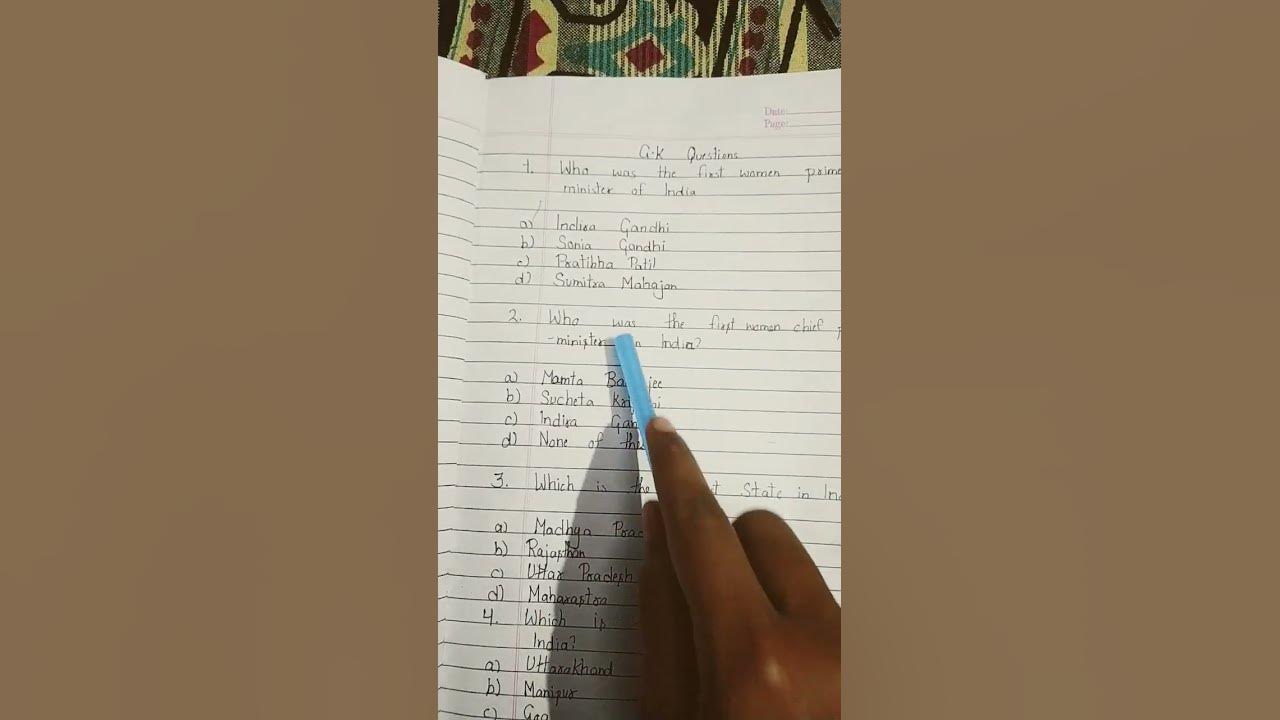 Date:
Page:
G.K Questions
1. Who was the first women prime
minister of India
a) Indira Gandhi
b) Sonia Gandhi
c) Pratibha Patil
d) Sumitra Mahajan
2. Who was the first women chief
-minister India?
a) Mamta
b) Sucheta
c) Indira
d) None of
3. Which is the State in
a) Madhya
b) Rajasthan
c) Uttar Pradesh
d) Maharastra
4. Which is
India?
a) Uttarakhand
b) Manipur
c)